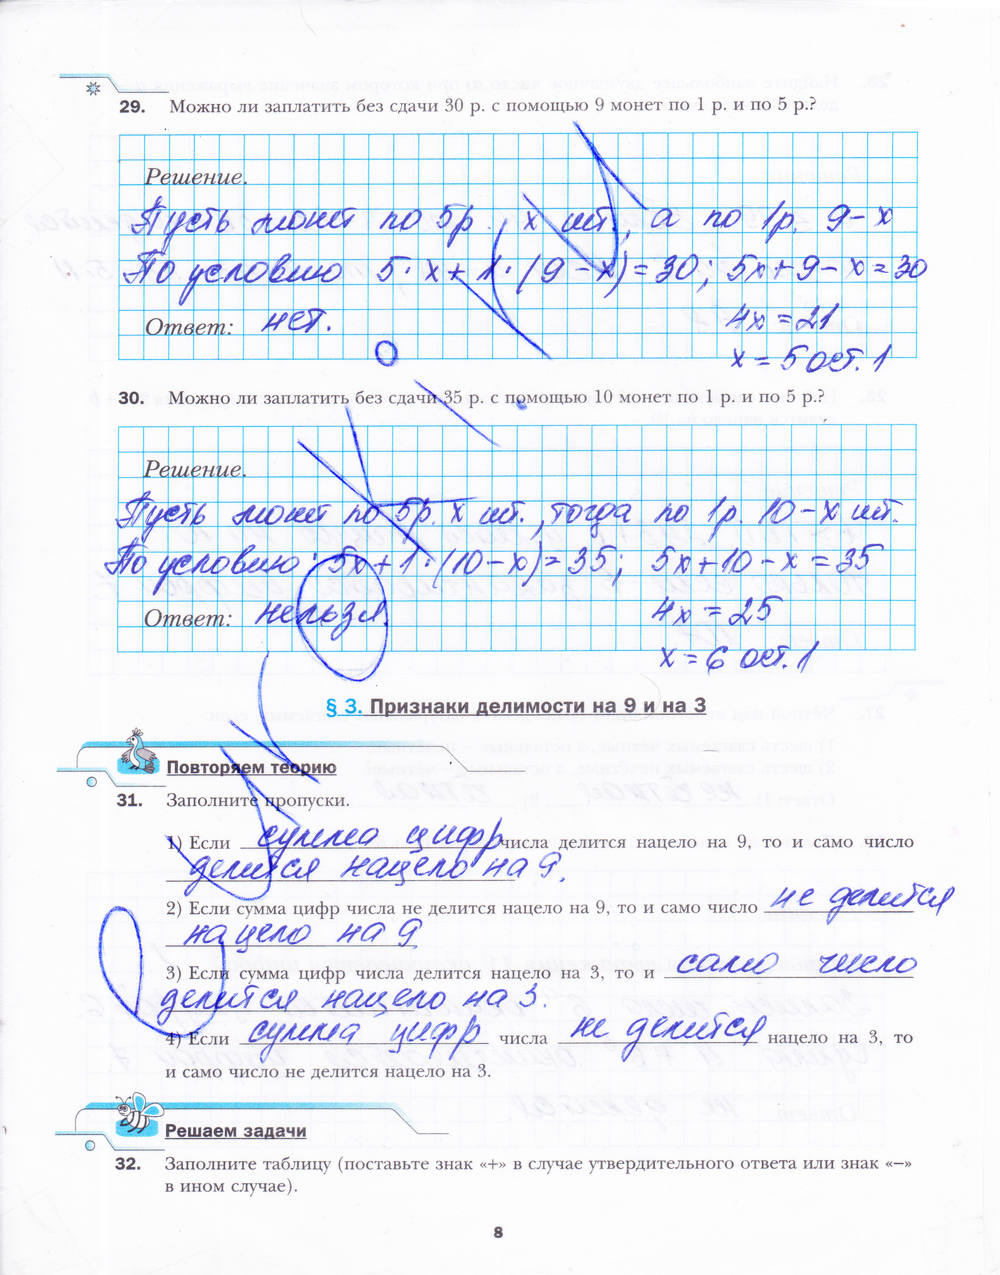 29. Можно ли заплатить без сдачи 30 р. с помощью 9 монет по 1 р. и по 5 р.?
Решение.
Пусть монет по 5р. x шт., а по 1р. 9-x
По условию 5·x+1·(9-x)=30; 5x+9-x=30
Ответ: нет. 4x=21
x=5 ост.1
30. Можно ли заплатить без сдачи 35 р. с помощью 10 монет по 1 р. и по 5 р.?
Решение.
Пусть монет по 5р. x шт., тогда по 1р. 10-x шт.
По условию: 5x+1·(10-x)=35; 5x+10-x=35
Ответ: нельзя. 4x=25
x=6 ост.1
§ 3. Признаки делимости на 9 и на 3
Повторяем теорию
31. Заполните пропуски.
1) Если сумма цифр числа делится нацело на 9, то и само число
делится нацело на 9.
2) Если сумма цифр числа не делится нацело на 9, то и само число не делится
нацело на 9
3) Если сумма цифр числа делится нацело на 3, то и само число
делится нацело на 3.
4) Если сумма цифр числа не делится нацело на 3, то
и само число не делится нацело на 3.
Решаем задачи
32. Заполните таблицу (поставьте знак «+» в случае утвердительного ответа или знак «−»
в ином случае).
8